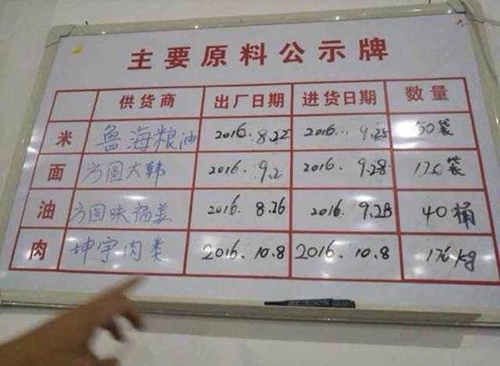 主要原料公示牌
供货商 出厂日期 进货日期 数量
米 鲁海粮油 2016.8.22 2016. 9.28 50袋
面 方圆大韩 2016.9.2 2016.9.28 袋
油 方圆味 2016.8.26 2016.9.28 40桶
肉 坤宇肉类 2016.10.8 2016.10.8 176kg